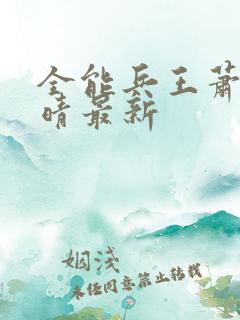 全能兵王萧
晴最新
姻浅
未经同意禁止转载